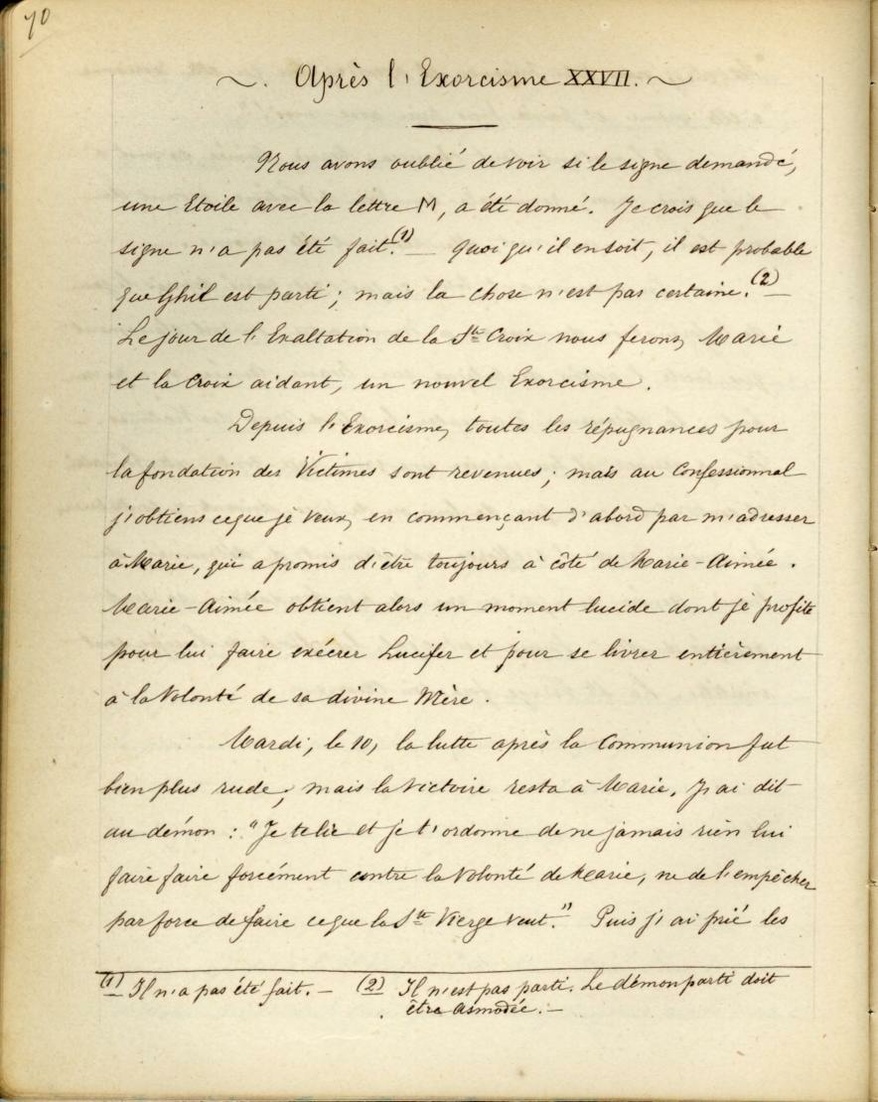 70
~. Après l'Exorcisme XXVII. ~
Nous avons oublié de voir si le signe demandé,
une Etoile avec la lettre M, a été donné. Je crois que le
signe n'a pas été fait.(1) — Quoiqu'il en soit, il est probable
que Ghil est parti ; mais la chose n'est pas certaine.(2) —
Le jour de l'Exaltation de la Ste Croix nous ferons, Marie
et la Croix aidant, un nouvel Exorcisme.
Depuis l'Exorcisme, toutes les répugnances pour
la fondation des Victimes sont revenues ; mais au Confessionnal
j'obtiens ce que je veux, en commençant d'abord par m'adresser
à Marie, qui a promis d'être toujours à côté de Marie-Aimée.
Marie-Aimée obtient alors un moment lucide dont je profite
pour lui faire exécrer Lucifer et pour se livrer entièrement
à la Volonté de sa divine Mère.
Mardi, le 10, la lutte après la Communion fut
bien plus rude ; mais la victoire resta à Marie. J'ai dit
au démon : "Je te lie et je t'ordonne de ne jamais rien lui
faire faire forcément contre la Volonté de Marie, ne de l'empêcher
par force de faire ce que la Ste Vierge veut." Puis j'ai prié les
(1) Il n'a pas été fait. — (2) Il n'est pas parti. Le démon parti doit
être Asmodée. —